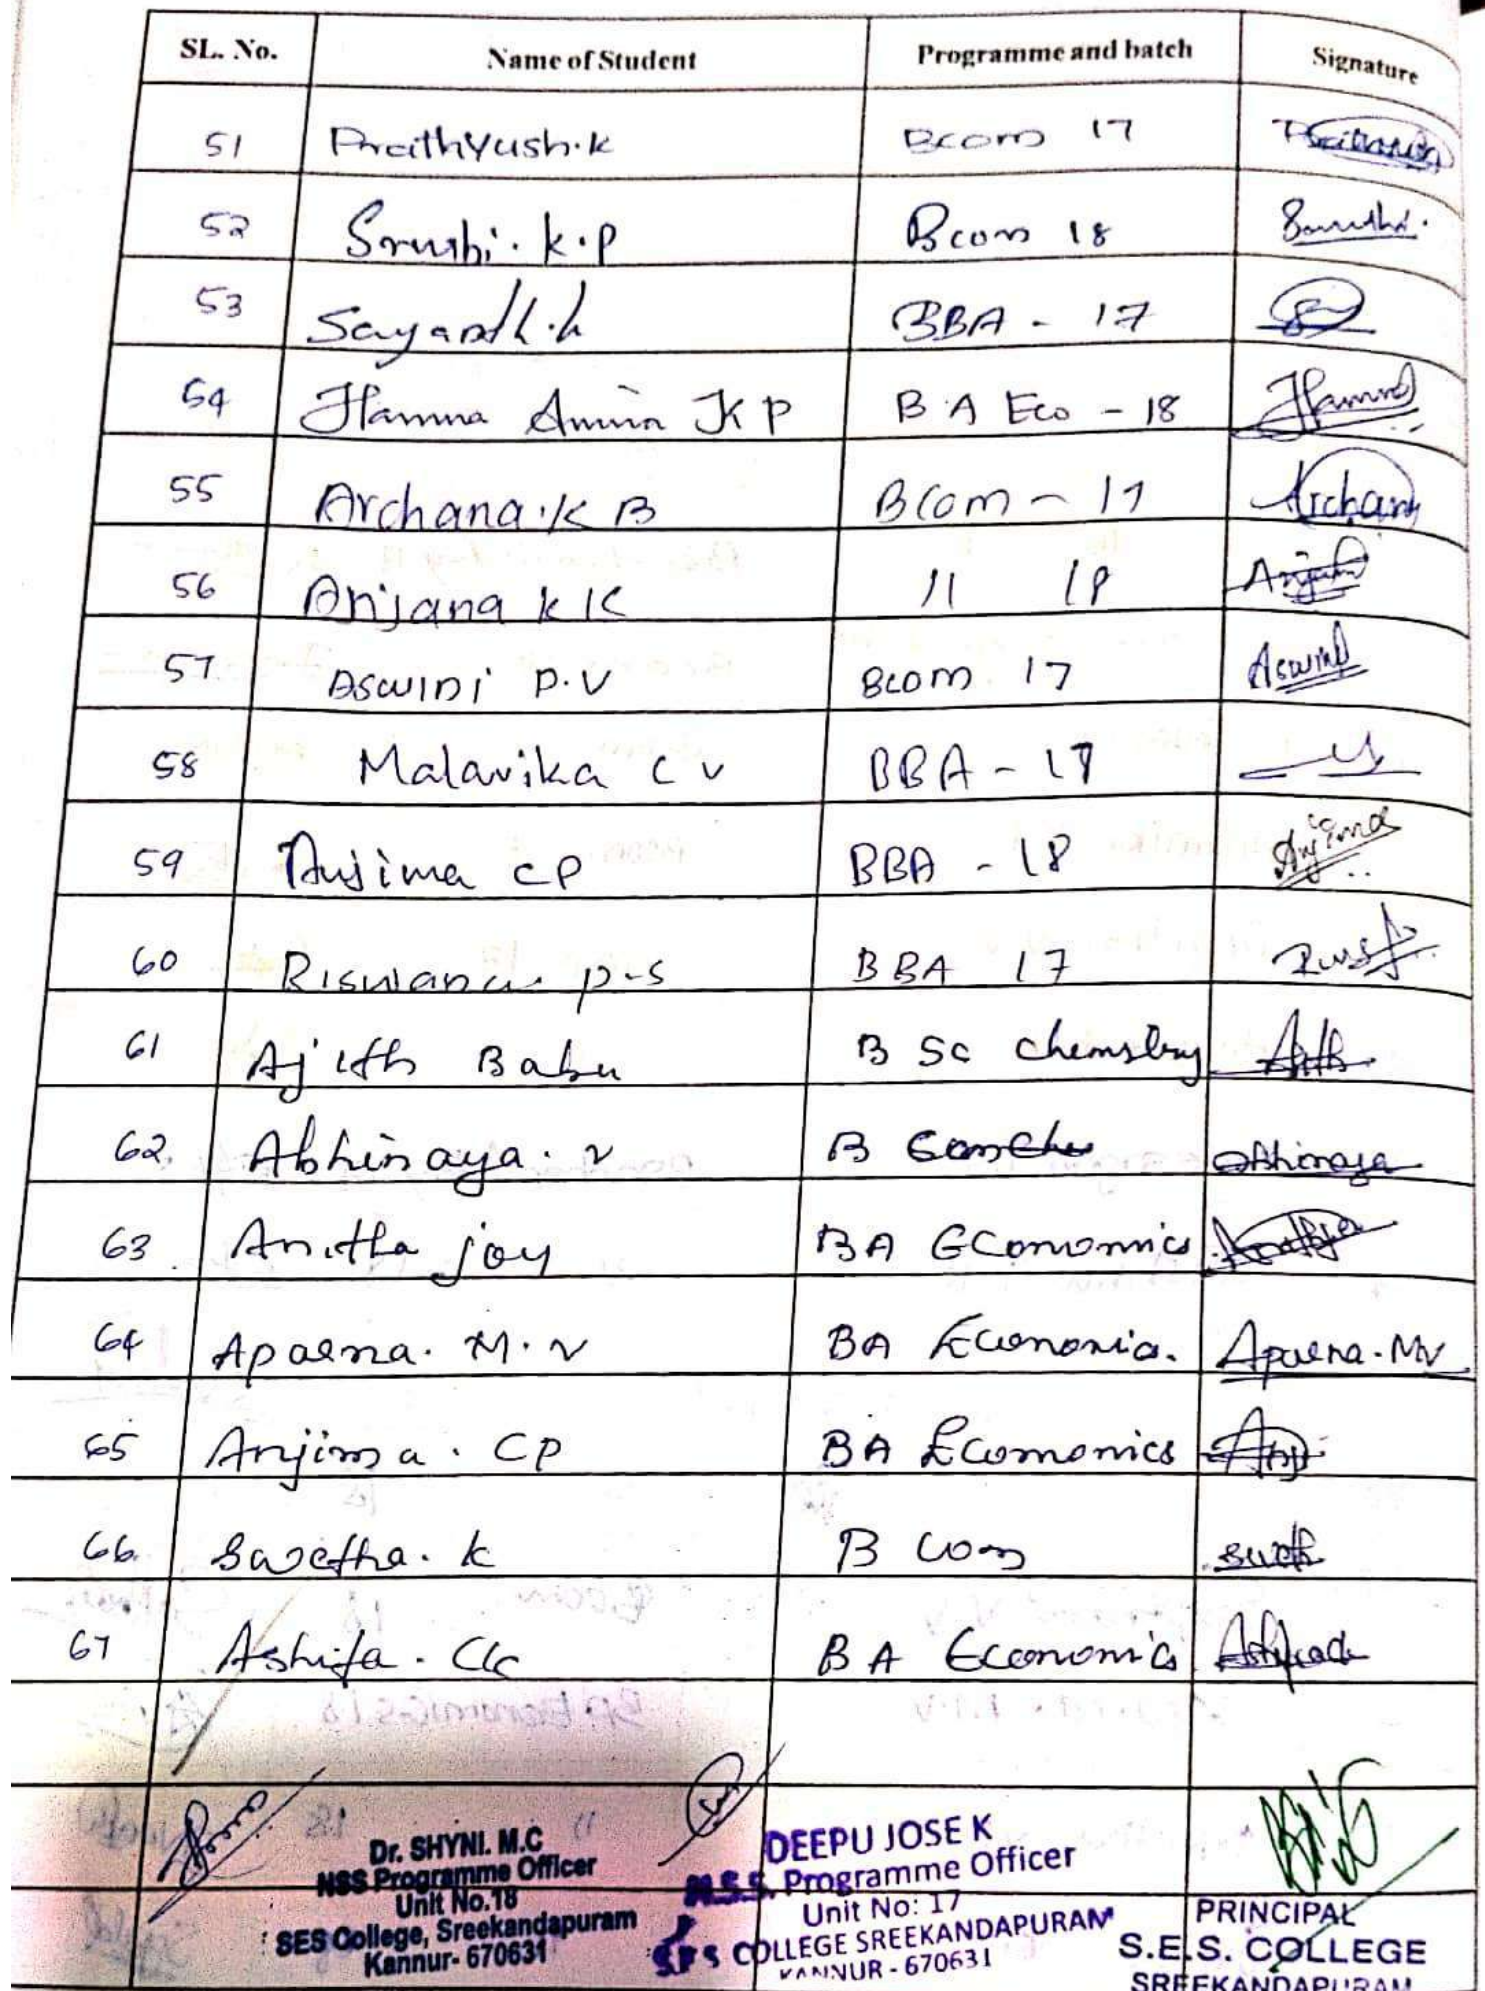 SL. No. Name of Student Programme and batch Signature
51 Prathyush.k Bcom 17
52 Sruthi. k.p Bcom 18
53 Sayanth.k BBA - 17
54 Hamna Amina K P B A Eco - 18 Hamna
55 Archana.K B BCom - 17 Archana
56 Anjana k K 11 18 Anjana
57 Aswini P.V Bcom 17 Aswini
58 Malavika C V BBA - 17
59 Anjima CP BBA - 18 Anjima
60 Riswana p-s BBA 17
61 Ajith Babu B Sc chemstry
62 Abhinaya. v B Abhinaya
63 Anitha joy BA Economics
64 Aparna. M.V BA Economics. Aparna.MV
65 Anjima. CP BA Economics Anj
66 Swetha. k B Com
67 Ashifa. CK BA Economics
Dr. SHYNI. M.C
NSS Programme Officer
Unit No.18
SES College, Sreekandapuram
Kannur- 670631
DEEPU JOSE K
N.S.S. Programme Officer
Unit No: 17
COLLEGE SREEKANDAPURAM
KANNUR - 670631
PRINCIPAL
S.E.S. COLLEGE
SREEKANDAPURAM